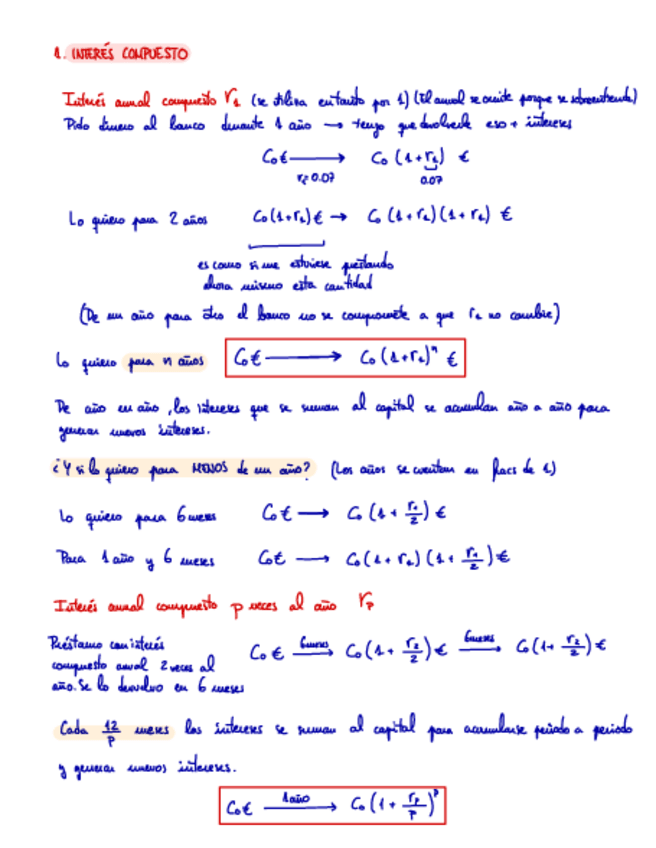 1. INTERÉS COMPUESTO
Interés anual compuesto r₁ (se utiliza en tanto por 1) (El anual se omite porque se sobreentiende)
Pido dinero al banco durante 1 año → tengo que devolverle eso + intereses
C₀€ → C₀ (1+r₁) €
r₁=0.07 0.07
Lo quiero para 2 años C₀(1+r₁)€ → C₀ (1+r₁)(1+r₁) €
es como si me estuviese prestando
ahora mismo esta cantidad
(De un año para otro el banco no se compromete a que r₁ no cambie)
Lo quiero para n años C₀€ → C₀ (1+r₁)ⁿ €
De año en año, los intereses que se suman al capital se acumulan año a año para
generar nuevos intereses.
¿Y si lo quiero para MENOS de un año? (Los años se cuentan en fracs de 1)
Lo quiero para 6 meses C₀€ → C₀ (1 + r₁/2) €
Para 1 año y 6 meses C₀€ → C₀(1+r₁)(1 + r₁/2)€
Interés anual compuesto p veces al año rₚ
Préstamo con interés
compuesto anual 2 veces al
año. Se lo devuelvo en 6 meses
C₀ € 6 meses → C₀(1 + r₂/2)€ 6 meses → C₀(1+ r₂/2)€
Cada 12/p meses los intereses se suman al capital para acumularse periodo a periodo
y generar nuevos intereses.
C₀€ 1 año → C₀(1 + rₚ/p)ᵖ